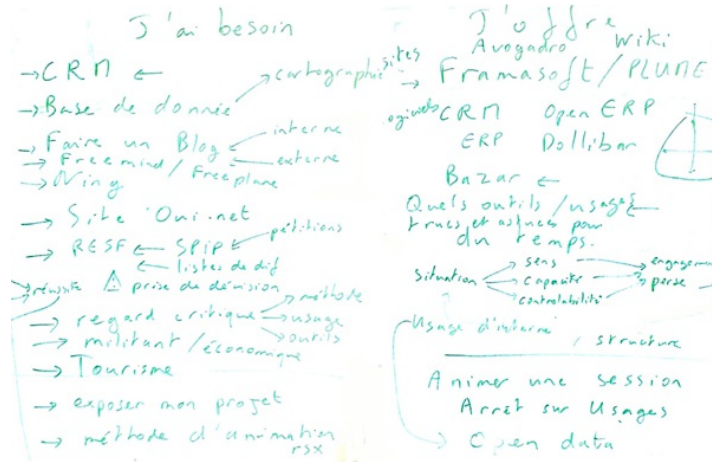 J'ai besoin
→ CRM ←
→ Base de donnée → cartographie
→ Faire un Blog ← interne
→ Freemind / Freeplane ← externe
→ Ning
→ Site Oui.net
→ RESF ← SPIP ← pétitions
← listes de dif
→ réussite ⚠ prise de décision
→ regard critique → méthode
→ usage
→ outils
→ militant / économique
→ Tourisme
→ exposer mon projet
→ méthode d'animation
rsx
J'offre
Avogadro Wiki
sites → Framasoft / PLUME
logiciels CRM Open ERP
ERP Dollibar
Bazar ←
Quels outils / usages ←
trucs et astuces pour
du temps.
Situation → sens → engagement
→ capacité → perse
→ contrôlabilité
Usage d'interne
/ structure
Animer une session
Arrêt sur Usages
→ Open data